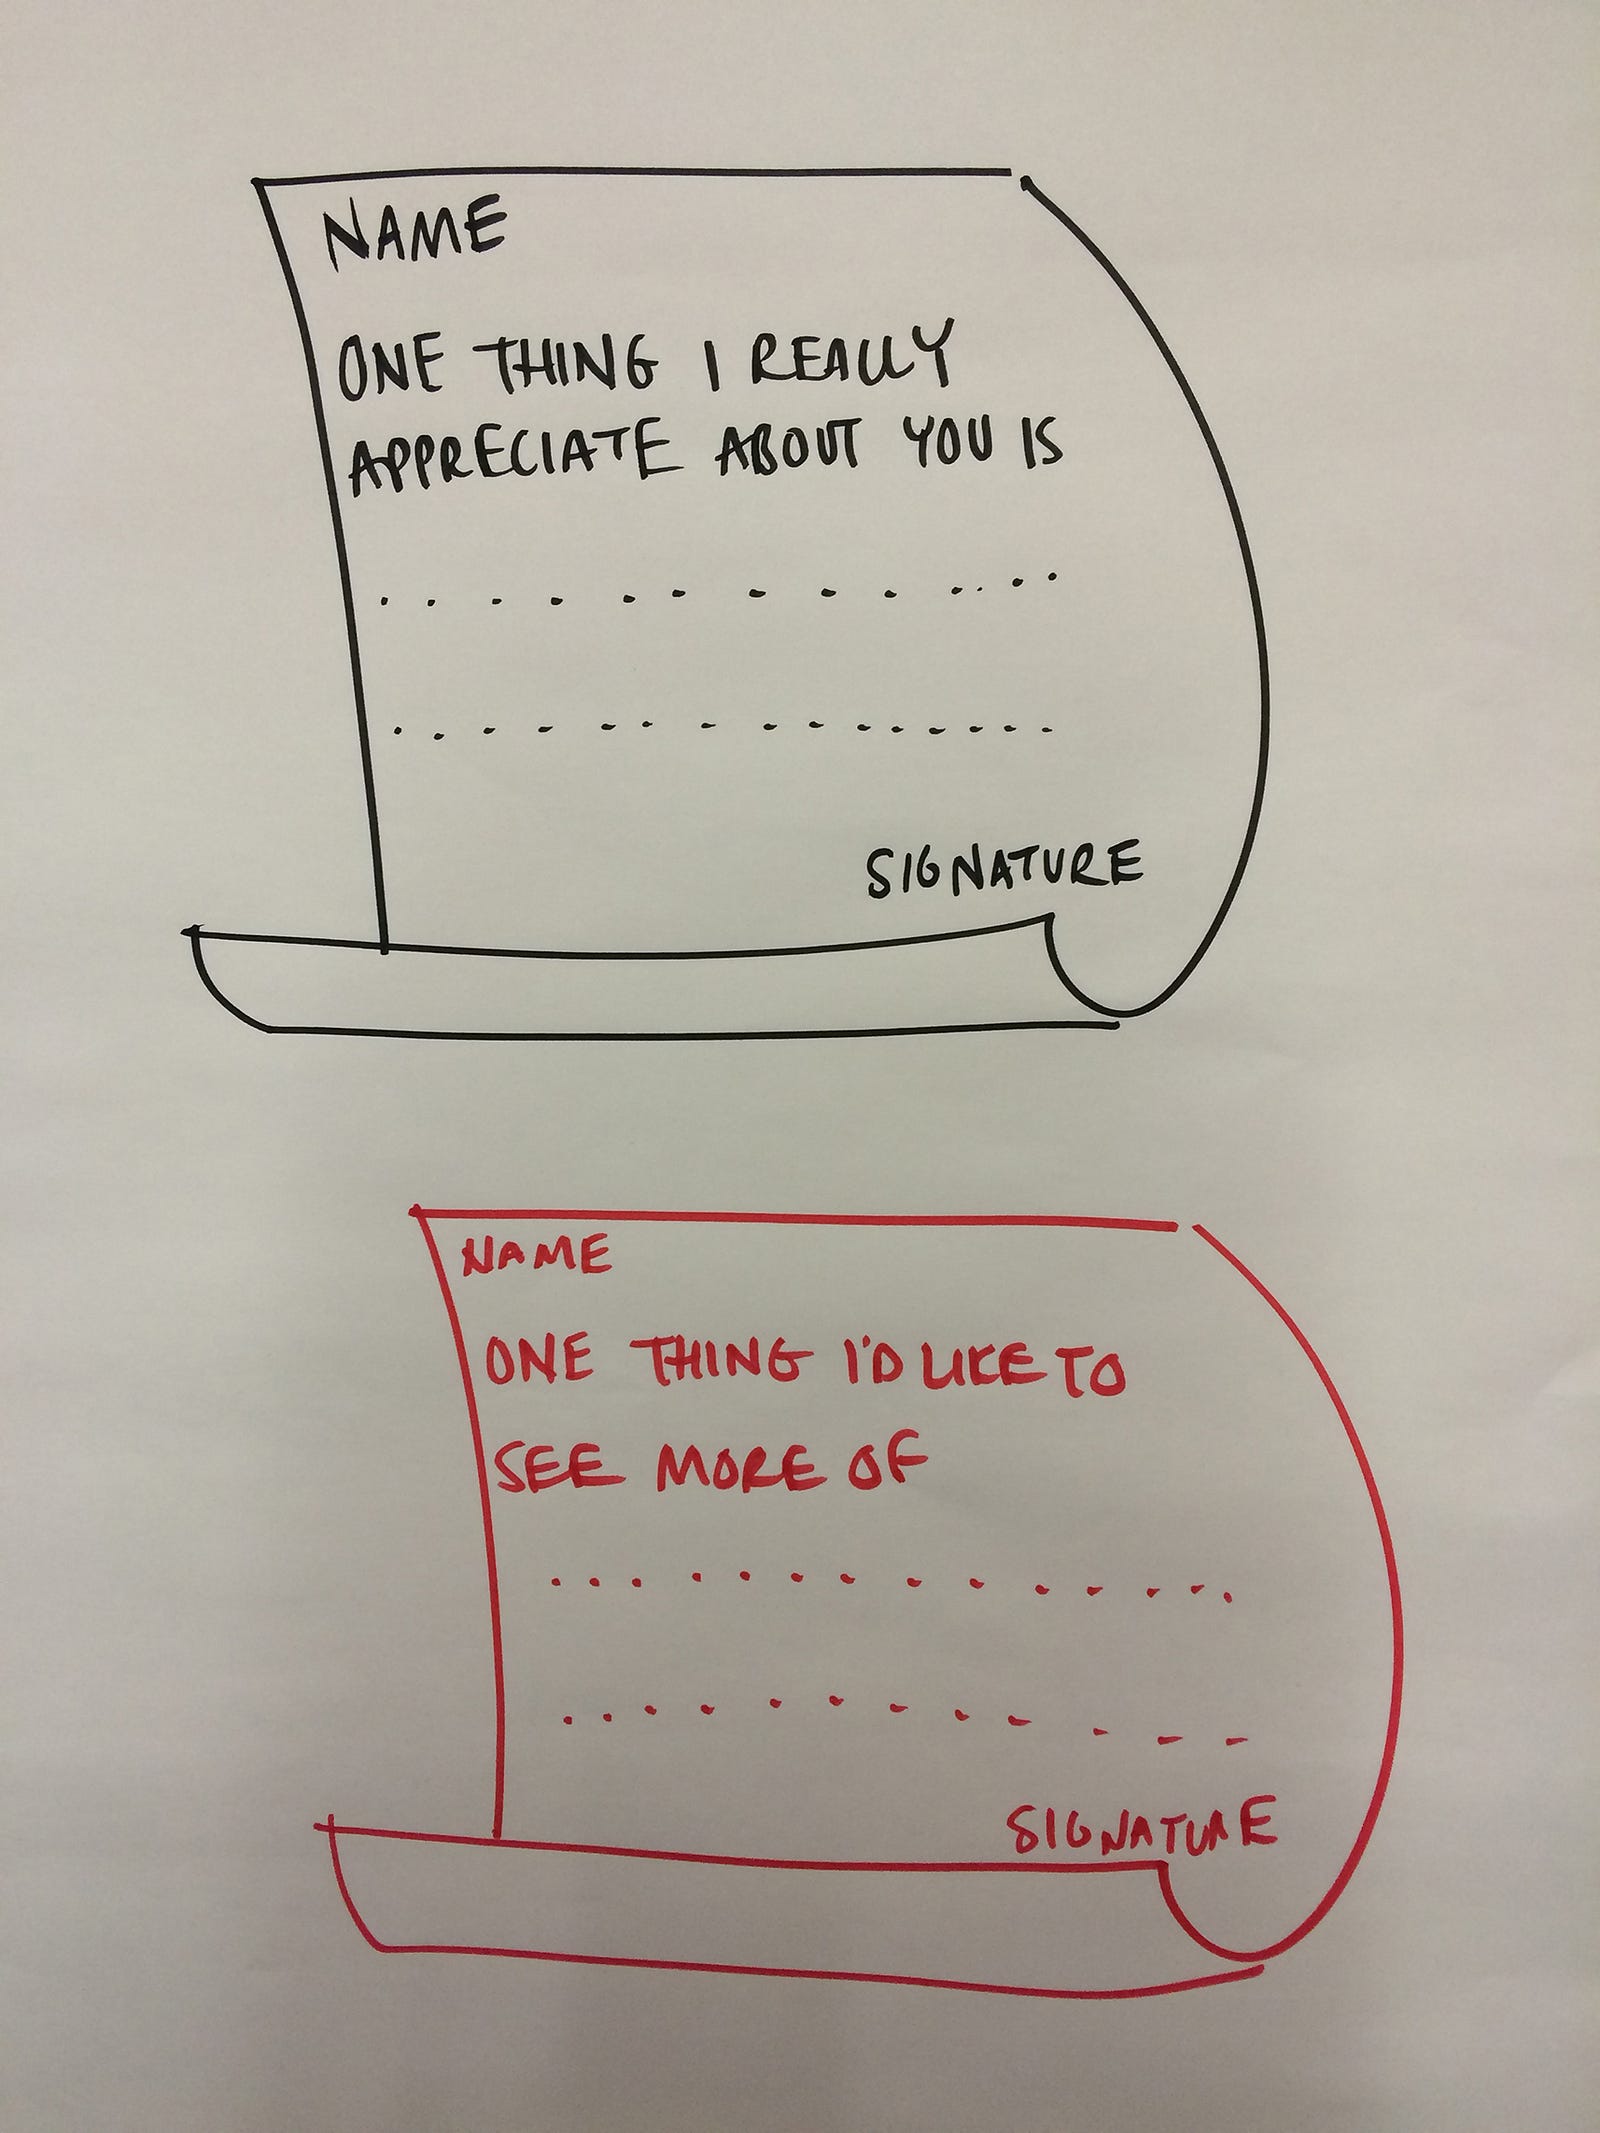 NAME
ONE THING I REALLY
APPRECIATE ABOUT YOU IS
. . . . . . . . . . . . .
. . . . . . . . . . . . . .
SIGNATURE
NAME
ONE THING I'D LIKE TO
SEE MORE OF
. . . . . . . . . . . . .
. . . . . . . . . . . .
SIGNATURE